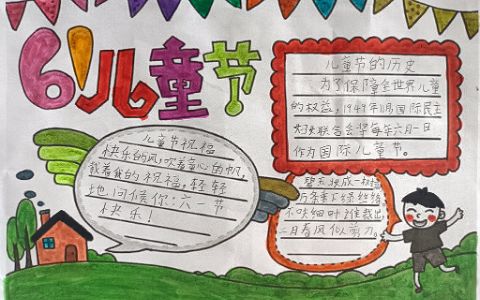 6·1儿童节
儿童节的历史
为了保障全世界儿童
的权益，1949年11月国际民主
妇女联合会将每年六月一日
作为国际儿童节。
儿童节祝福
快乐的风，吹着童心的帆，
载着我的祝福，轻轻
地问候你：六一节
快乐！
碧玉妆成一树高
万条垂下绿丝绦
不知细叶谁裁出，
二月春风似剪刀。